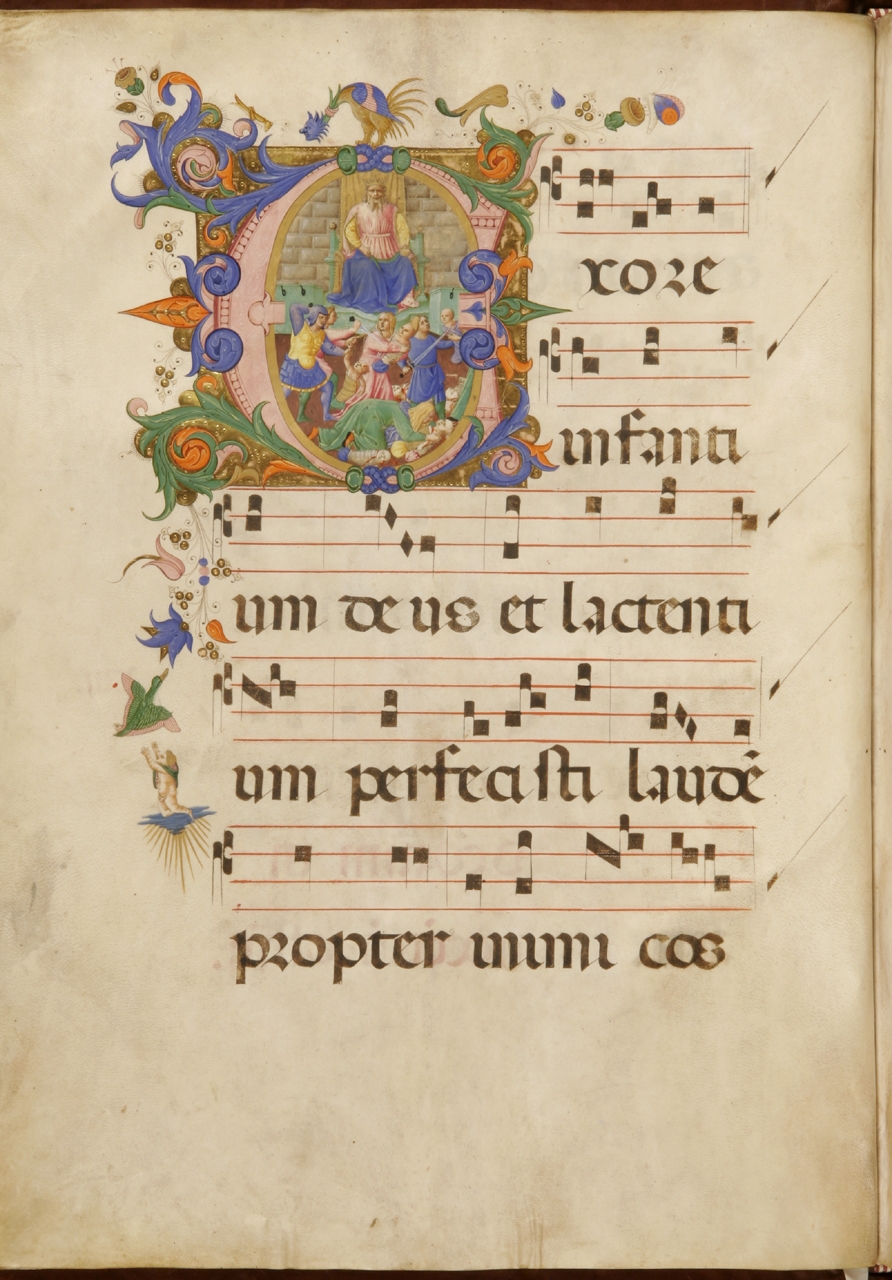 Exore
infanti
um deus et lactenti
um perfecisti laudē
propter inimi cos